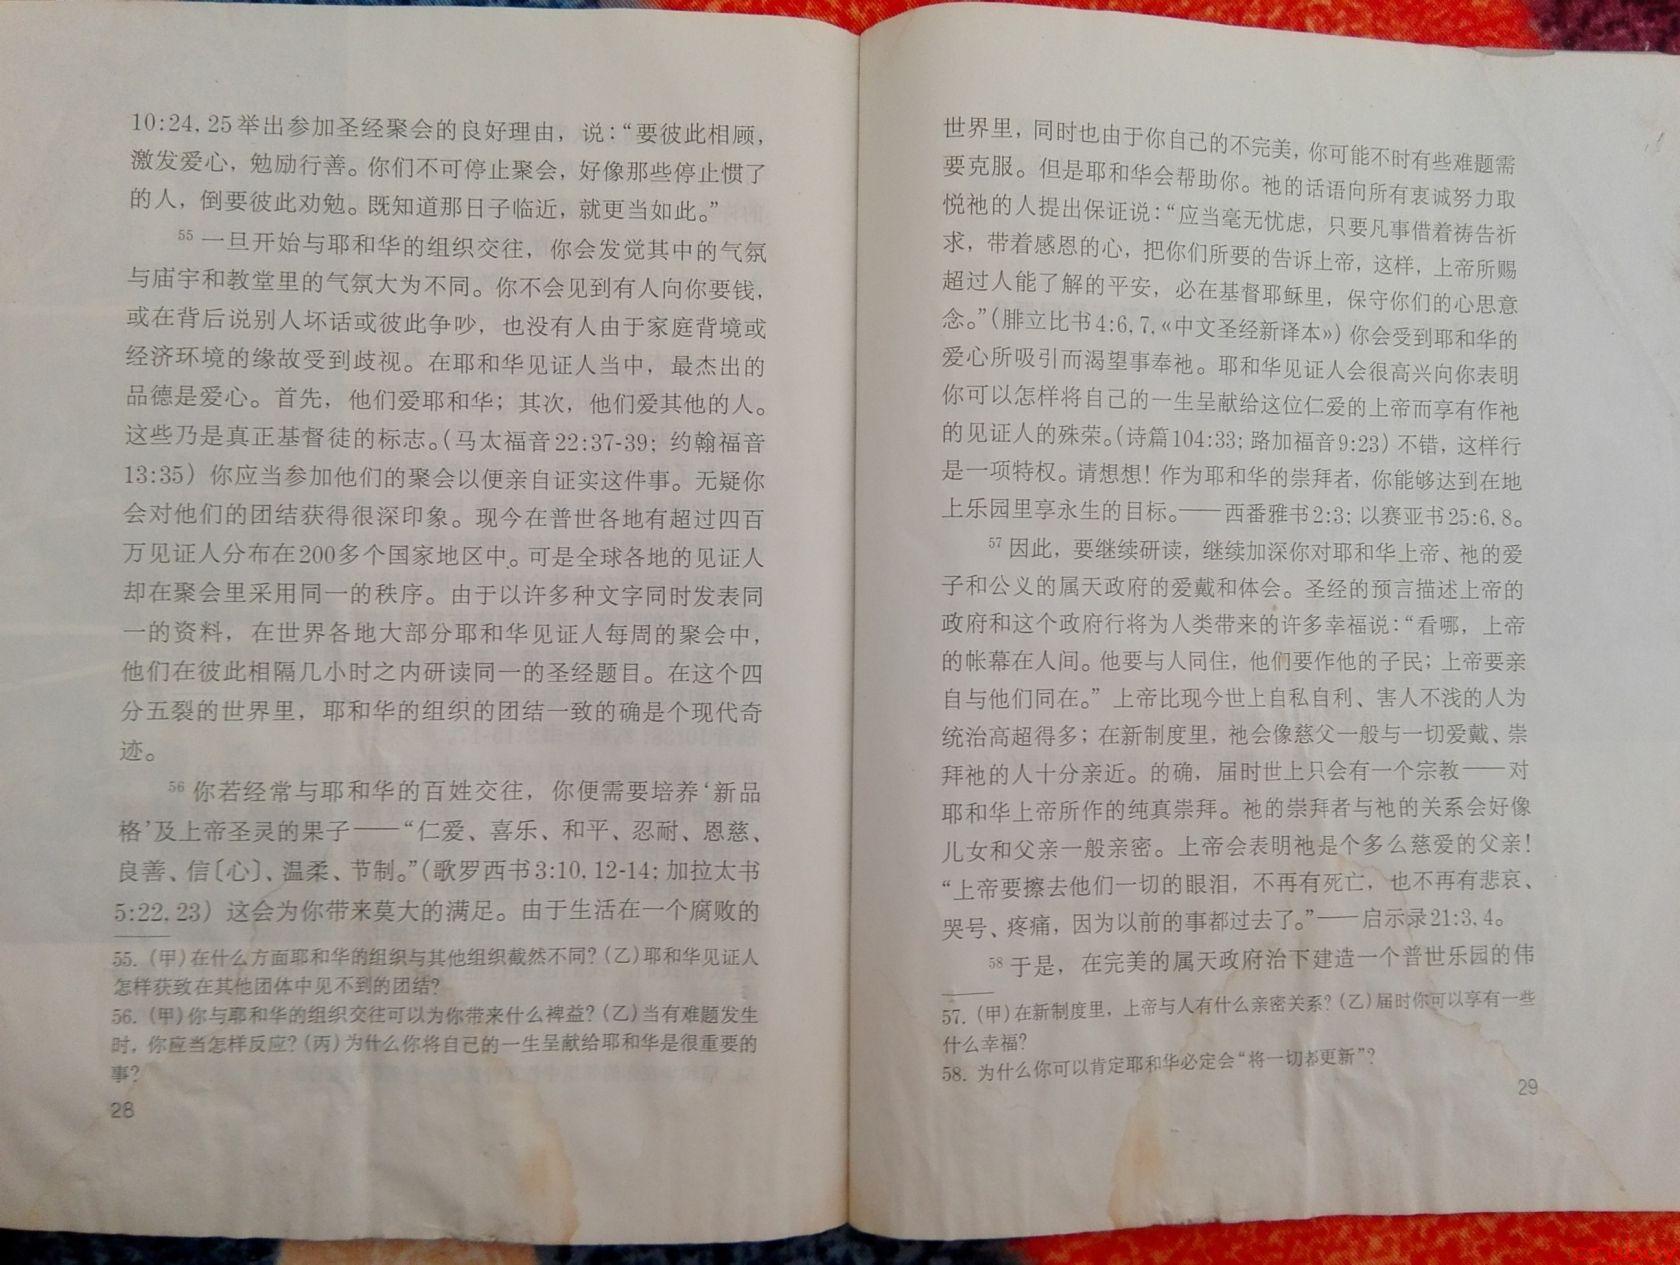 10:24, 25举出参加圣经聚会的良好理由，说：“要彼此相顾，
激发爱心，勉励行善。你们不可停止聚会，好像那些停止惯了
的人，倒要彼此劝勉。既知道那日子临近，就更当如此。”
55 一旦开始与耶和华的组织交往，你会发觉其中的气氛
与庙宇和教堂里的气氛大为不同。你不会见到有人向你要钱，
或在背后说别人坏话或彼此争吵，也没有人由于家庭背境或
经济环境的缘故受到歧视。在耶和华见证人当中，最杰出的
品德是爱心。首先，他们爱耶和华；其次，他们爱其他的人。
这些乃是真正基督徒的标志。（马太福音22:37-39；约翰福音
13:35）你应当参加他们的聚会以便亲自证实这件事。无疑你
会对他们的团结获得很深印象。现今在普世各地有超过四百
万见证人分布在200多个国家地区中。可是全球各地的见证人
却在聚会里采用同一的秩序。由于以许多种文字同时发表同
一的资料，在世界各地大部分耶和华见证人每周的聚会中，
他们在彼此相隔几小时之内研读同一的圣经题目。在这个四
分五裂的世界里，耶和华的组织的团结一致的确是个现代奇
迹。
56 你若经常与耶和华的百姓交往，你便需要培养‘新品
格’及上帝圣灵的果子——“仁爱、喜乐、和平、忍耐、恩慈、
良善、信〔心〕、温柔、节制。”（歌罗西书3:10, 12-14；加拉太书
5:22, 23）这会为你带来莫大的满足。由于生活在一个腐败的
55.（甲）在什么方面耶和华的组织与其他组织截然不同？（乙）耶和华见证人
怎样获致在其他团体中见不到的团结？
56.（甲）你与耶和华的组织交往可以为你带来什么裨益？（乙）当有难题发生
时，你应当怎样反应？（丙）为什么你将自己的一生呈献给耶和华是很重要的
事？
28
世界里，同时也由于你自己的不完美，你可能不时有些难题需
要克服。但是耶和华会帮助你。祂的话语向所有衷诚努力取
悦祂的人提出保证说：“应当毫无忧虑，只要凡事借着祷告祈
求，带着感恩的心，把你们所要的告诉上帝，这样，上帝所赐
超过人能了解的平安，必在基督耶稣里，保守你们的心思意
念。”（腓立比书4:6, 7,《中文圣经新译本》）你会受到耶和华的
爱心所吸引而渴望事奉祂。耶和华见证人会很高兴向你表明
你可以怎样将自己的一生呈献给这位仁爱的上帝而享有作祂
的见证人的殊荣。（诗篇104:33；路加福音9:23）不错，这样行
是一项特权。请想想！作为耶和华的崇拜者，你能够达到在地
上乐园里享永生的目标。——西番雅书2:3；以赛亚书25:6, 8。
57 因此，要继续研读，继续加深你对耶和华上帝、祂的爱
子和公义的属天政府的爱戴和体会。圣经的预言描述上帝的
政府和这个政府行将为人类带来的许多幸福说：“看哪，上帝
的帐幕在人间。他要与人同住，他们要作他的子民；上帝要亲
自与他们同在。”上帝比现今世上自私自利、害人不浅的人为
统治高超得多；在新制度里，祂会像慈父一般与一切爱戴、崇
拜祂的人十分亲近。的确，届时世上只会有一个宗教——对
耶和华上帝所作的纯真崇拜。祂的崇拜者与祂的关系会好像
儿女和父亲一般亲密。上帝会表明祂是个多么慈爱的父亲！
“上帝要擦去他们一切的眼泪，不再有死亡，也不再有悲哀、
哭号、疼痛，因为以前的事都过去了。”——启示录21:3, 4。
58 于是，在完美的属天政府治下建造一个普世乐园的伟
57.（甲）在新制度里，上帝与人有什么亲密关系？（乙）届时你可以享有一些
什么幸福？
58. 为什么你可以肯定耶和华必定会“将一切都更新”？
29